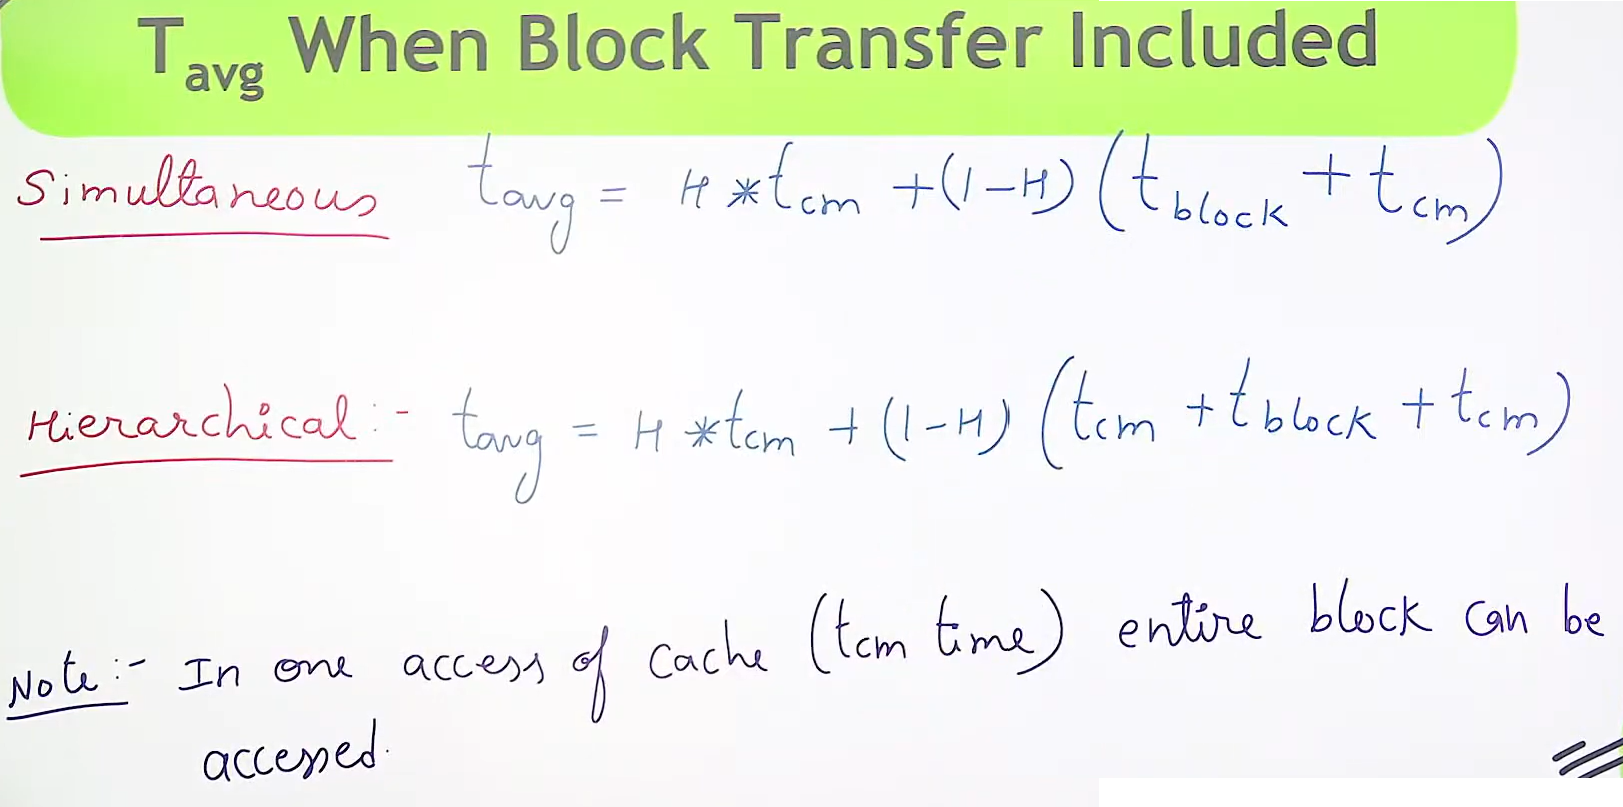 Tavg When Block Transfer Included
Simultaneous tavg = H * tcm + (1-H) (tblock + tcm)
Hierarchical :- tavg = H * tcm + (1-H) (tcm + tblock + tcm)
Note :- In one access of cache (tcm time) entire block can be
accessed.